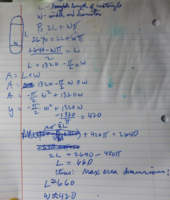 L = length of rectangle
W = width and diameter
P = 2L + Wπ
2640 = 2L + Wπ
2640 - Wπ = L
2
L = 1320 - π/2 W
A = L × W
A = 1320 - π/2 W × W
A = -π/2 W² + 1320 W
y = -π/2 W² + 1320 W
-1320 = 420
+ 420π = 2640
2L = 2640 - 420π
L = 660
thus: Max area dimensions:
L = 660
W = 420